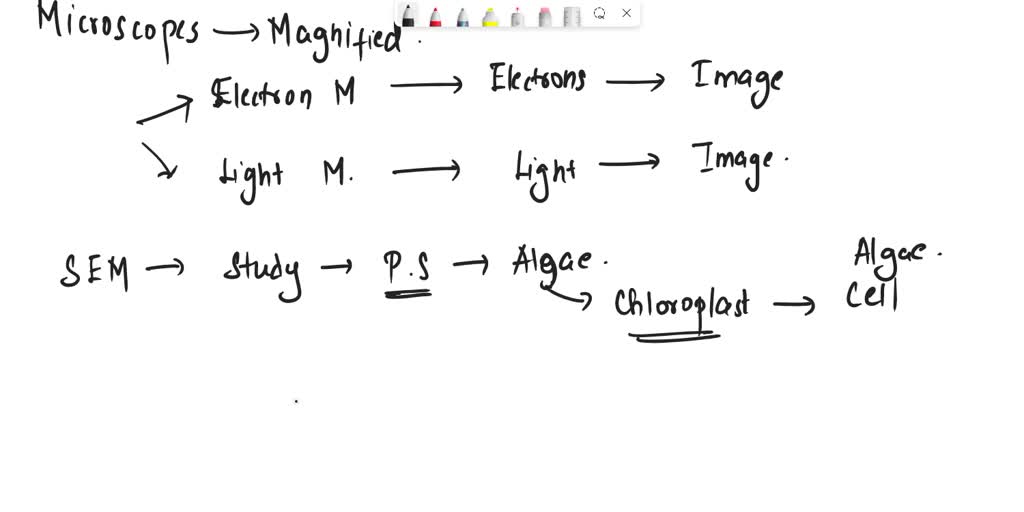 Microscopes → Magnified.
Electron M → Electrons → Image
Light M. → Light → Image.
SEM → Study → P.S → Algae.
Chloroplast → Algae. Cell